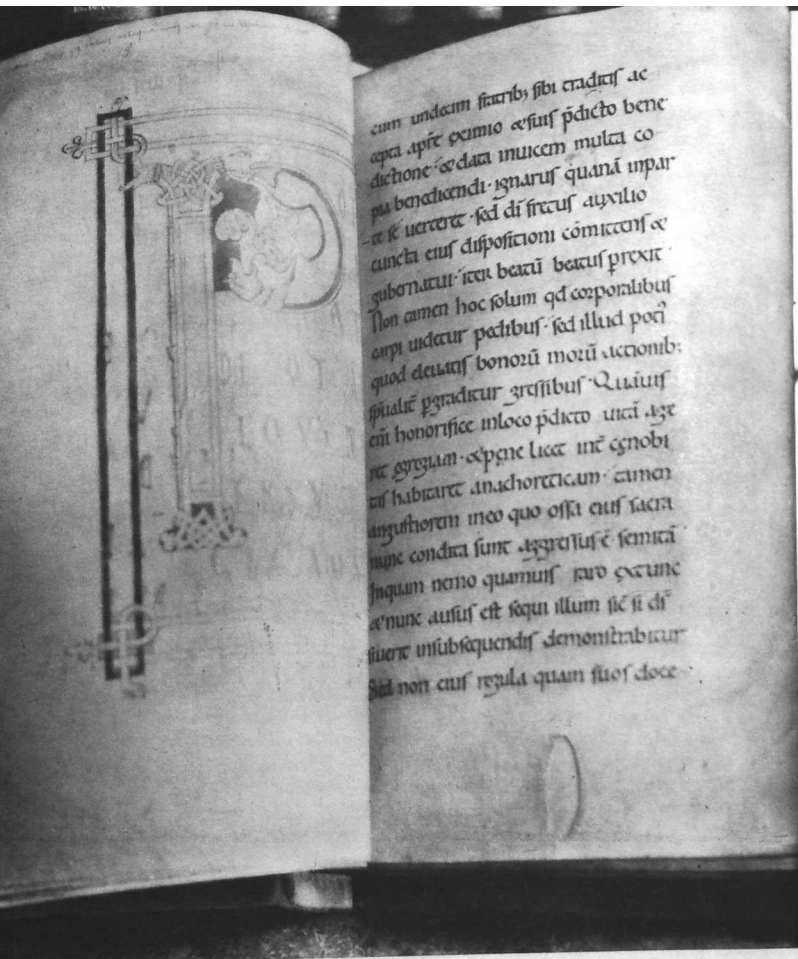 cum undecim fratrib; sibi traditis ac
cepta apr̄e eximio & suis p̄dicto bene
dictione · & data inuicem multa co
pia benedicendi · ignarus quanā inpar
te se uerteret · sed dī fretus auxilio
cuncta eius dispositioni cōmittens &
gubernatui · iter beatū beatus prexit
Non tamen hoc solum qd corporalibus
carpi uidetur pedibus · sed illud poti
quod eleuatis bonorū morū actionib;
sp̄ualit̄ pgraditur gressibus · Quāuis
eni honorifice inloco p̄dicto uitā age
ret egregiam · & pene licet int̄ cenobi
tas habitaret anachoreticam · tamen
angustiorem in eo quo ossa eius sacra
nunc condita sunt aggressus ē semitā
Inquam nemo quamuis raro ex tunc
& nunc ausus est sequi illum sic̄ si dī
siuerit insubsequendis demonstrabitur
Sed non eius regula quam suos doce